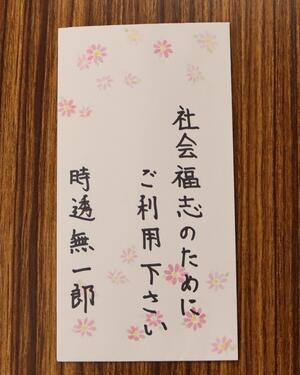 社会福志のために
ご利用下さい
時透無一郎